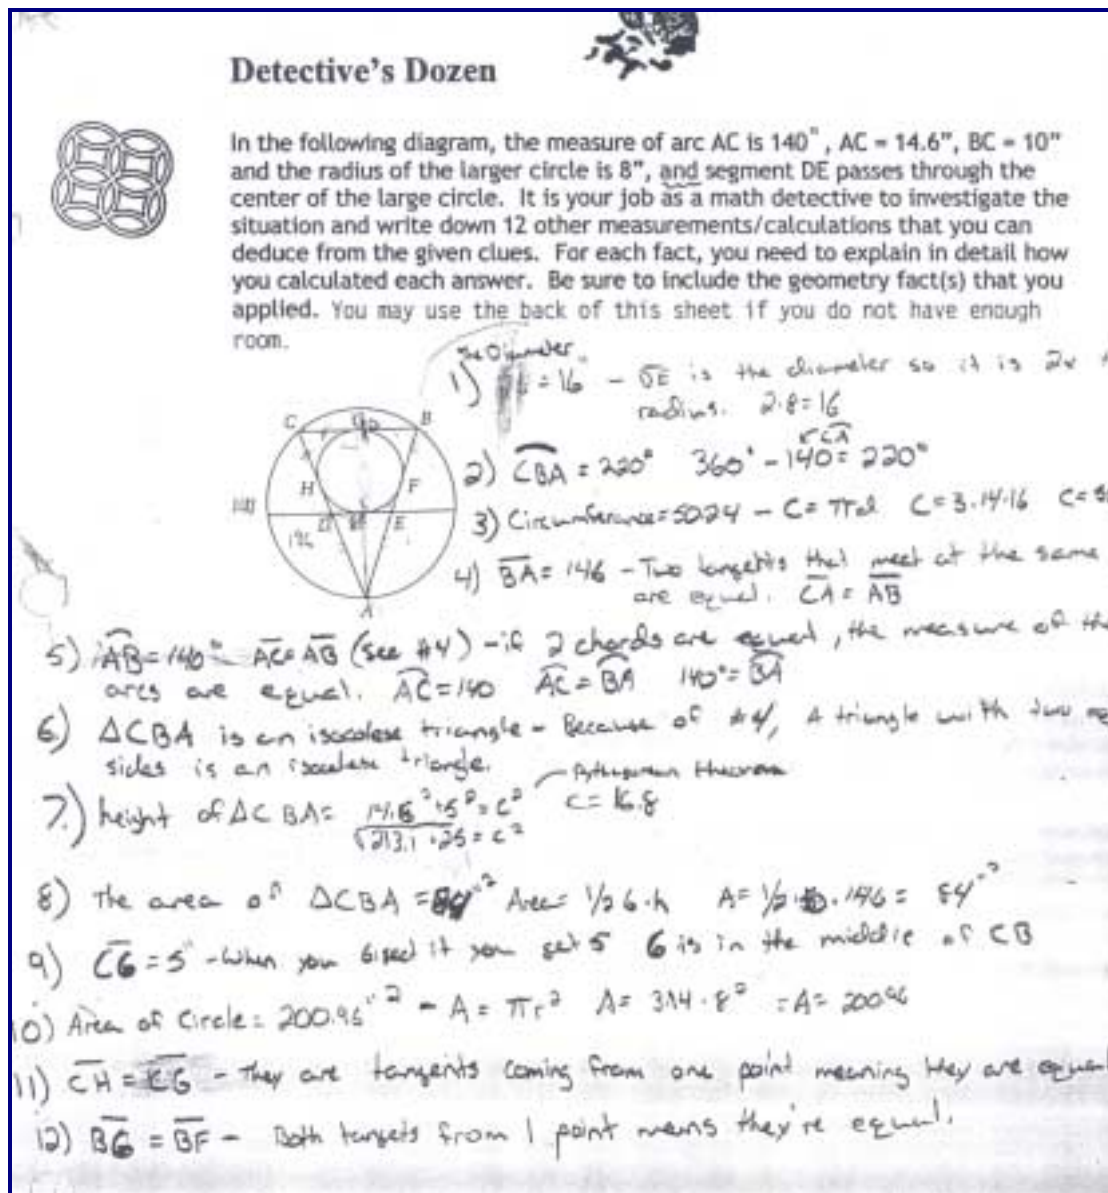 Detective's Dozen
In the following diagram, the measure of arc AC is 140°, AC = 14.6”, BC = 10”
and the radius of the larger circle is 8”, and segment DE passes through the
center of the large circle. It is your job as a math detective to investigate the
situation and write down 12 other measurements/calculations that you can
deduce from the given clues. For each fact, you need to explain in detail how
you calculated each answer. Be sure to include the geometry fact(s) that you
applied. You may use the back of this sheet if you do not have enough
room.
The Diameter
1) = 16" - DE is the diameter so it is 2x
radius. 2·8=16
CA
2) CBA = 220° 360° - 140° = 220°
3) Circumference = 50.24 - C = πd C = 3.14·16 C =
4) BA = 14.6 - Two tangents that meet at the same
are equal. CA = AB
C G B
H F
D E
A
5) AB = 140° AC = AB (see #4) - if 2 chords are equal, the measure of the
arcs are equal. AC = 140 AC = BA 140° = BA
6) ΔCBA is an isocolese triangle - Because of #4, A triangle with two
sides is an isocolese triangle.
7.) height of ΔCBA = 14.6² + 5² = c² Pythagorean theorem
√213.1 + 25 = c² c = 16.8
8) The area of ΔCBA = 84"² Area = 1/2 b·h A = 1/2 · · 14.6 = 84"²
9) CG = 5" - When you bisect it you get 5 G is in the middle of CB
10) Area of Circle = 200.96"² - A = πr² A = 3.14·8² = A = 200.96
11) CH = CG - They are tangents coming from one point meaning they are equal
12) BG = BF - Both tangets from 1 point means they're equal.